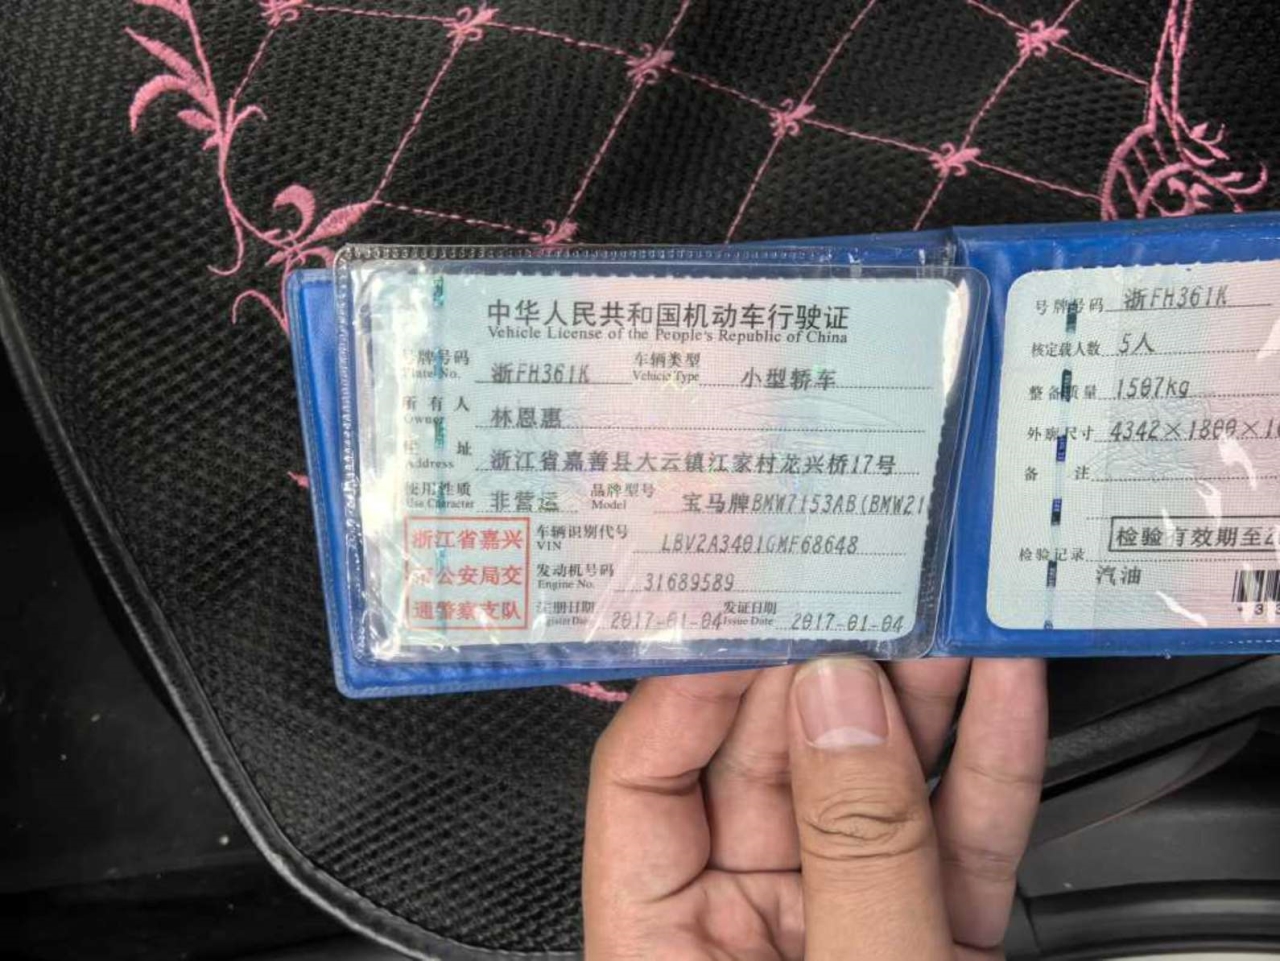 中华人民共和国机动车行驶证
Vehicle License of the People's Republic of China
号牌号码 浙FH361K 车辆类型 小型轿车
Plate No. Vehicle Type
所有人 林恩惠
Owner
住址 浙江省嘉善县大云镇江家村龙兴桥17号
Address
使用性质 非营运 品牌型号 宝马牌BMW7153AB(BMW21
Use Character Model
浙江省嘉兴
市公安局交
通警察支队
车辆识别代号 LBV2A3401GMF68648
VIN
发动机号码 31689589
Engine No.
注册日期 2017-01-04 发证日期 2017-01-04
Register Date Issue Date
号牌号码 浙FH361K
核定载人数 5人
整备质量 1507kg
外廓尺寸 4342×1800×
备注
检验有效期至
检验记录
汽油